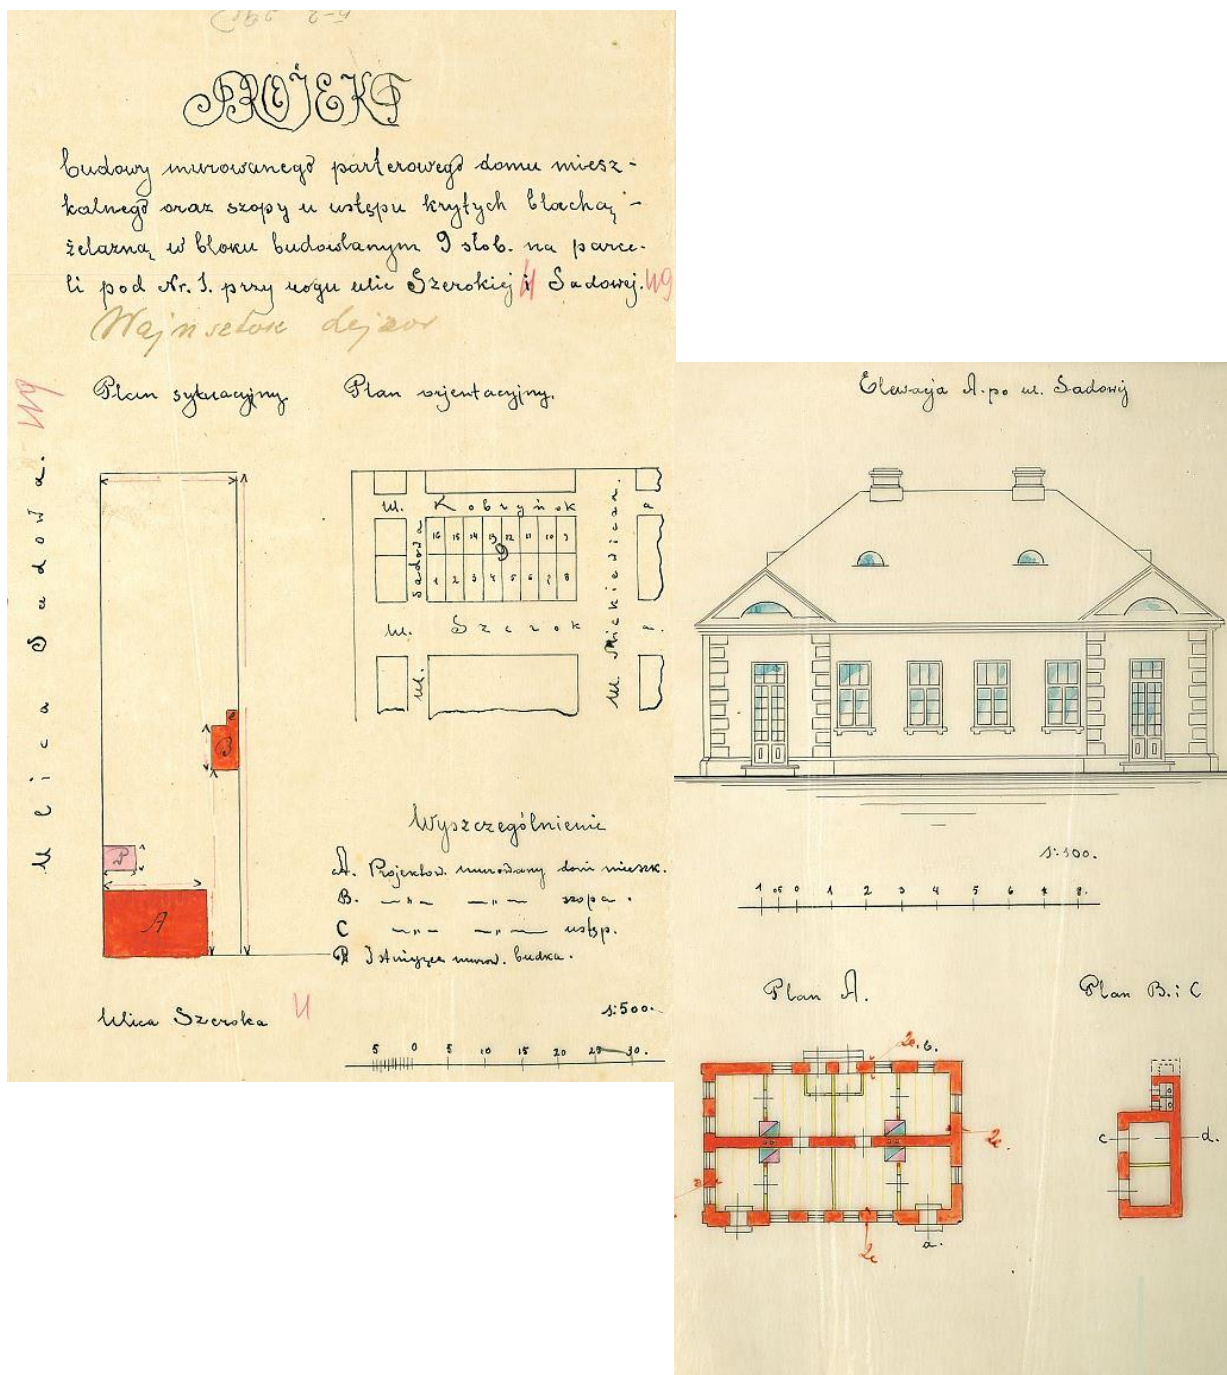 PROJEKT
budowy murowanego parterowego domu miesz-
kalnego oraz szopy u ustępu krytych blachą -
żelazną w bloku budowlanym 9 słob. na parce-
li pod Nr. 1. przy rogu ulic Szerokiej i Sadowej. 49
Wajnsztok Lejzor
Plan sytuacyjny.
Plan orjentacyjny.
Ulica Sadowa. 49
B
P
A
ul. Kobryńska
Sadowa
16 15 14 13 12 11 10 9
9
1 2 3 4 5 6 7 8
ul. Mickiewicza.
ul. Szeroka.
ul.
Wyszczególnienie
A. Projektow. murowany dom mieszk.
B. —„— —„— szopa.
C —„— —„— ustęp.
P Istniejąca murow. budka.
Ulica Szeroka
1:500.
5 0 5 10 15 20 25 30.
Elewacja A. po ul. Sadowej
1:100.
1 05 0 1 2 3 4 5 6 7 8.
Plan A.
Plan B. i C
b.
a.
c
d.